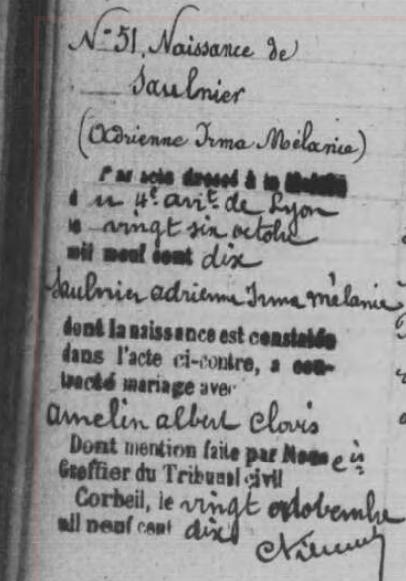 N° 51. Naissance de
Saulnier
(Adrienne Irma Mélanie)
Par acte dressé à la Mairie
du 4e arrt de Lyon
le vingt six octobre
mil neuf cent dix
Saulnier adrienne Irma mélanie
dont la naissance est constatée
dans l'acte ci-contre, a con-
tracté mariage avec
amelin albert clovis
Dont mention faite par Nous
Greffier du Tribunal civil
Corbeil, le vingt
mil neuf cent dix